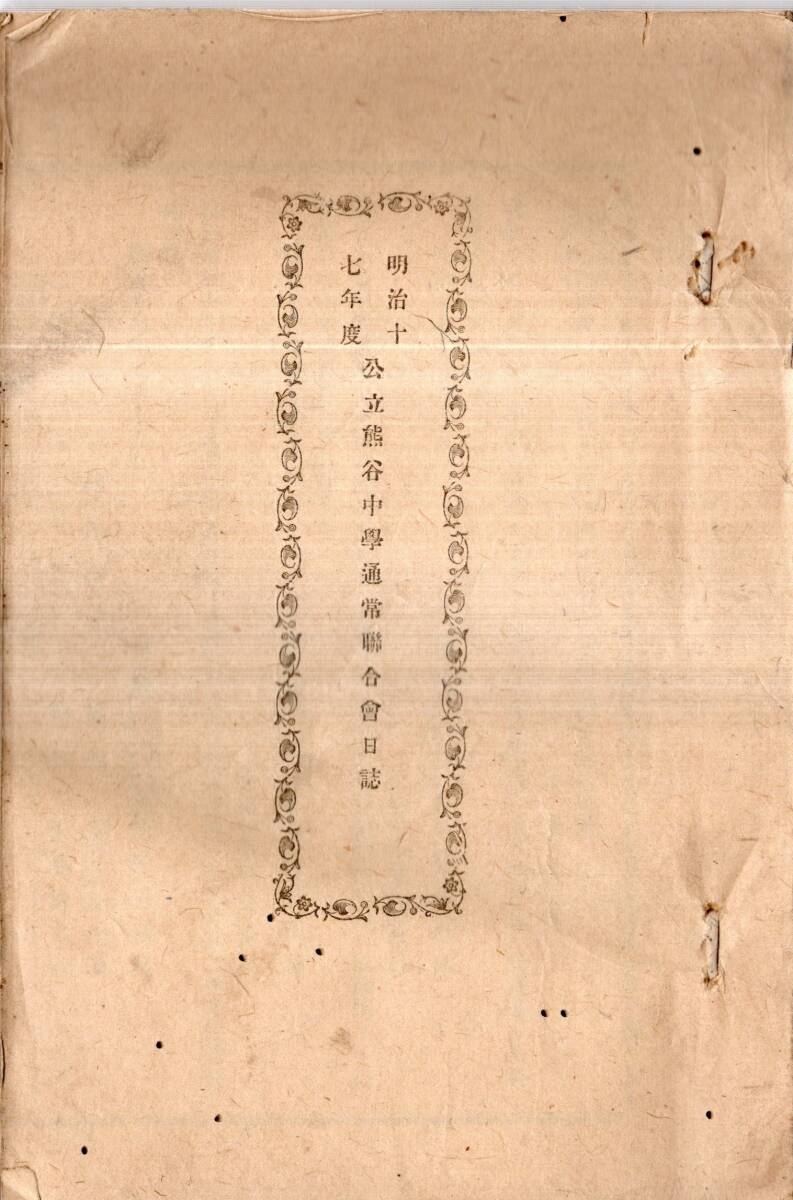 明治十
七年度
公立熊谷中學通常聯合會日誌